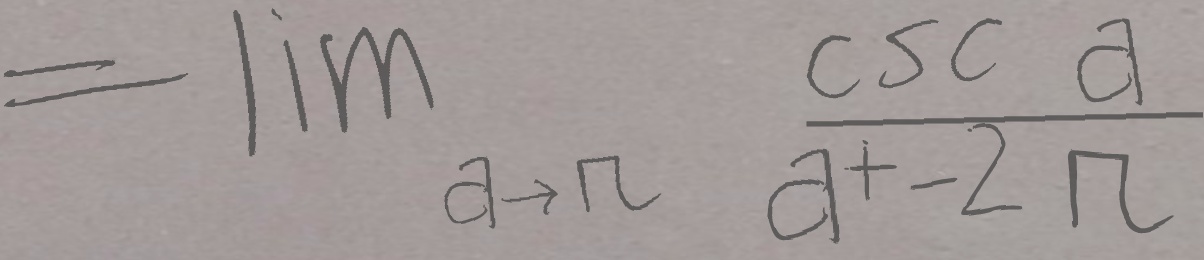 = lim_{a→π} \frac{csc a}{a + -2π}